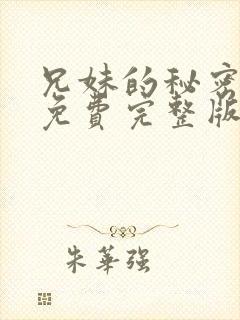 兄妹的秘密
免費完整版
朱華強